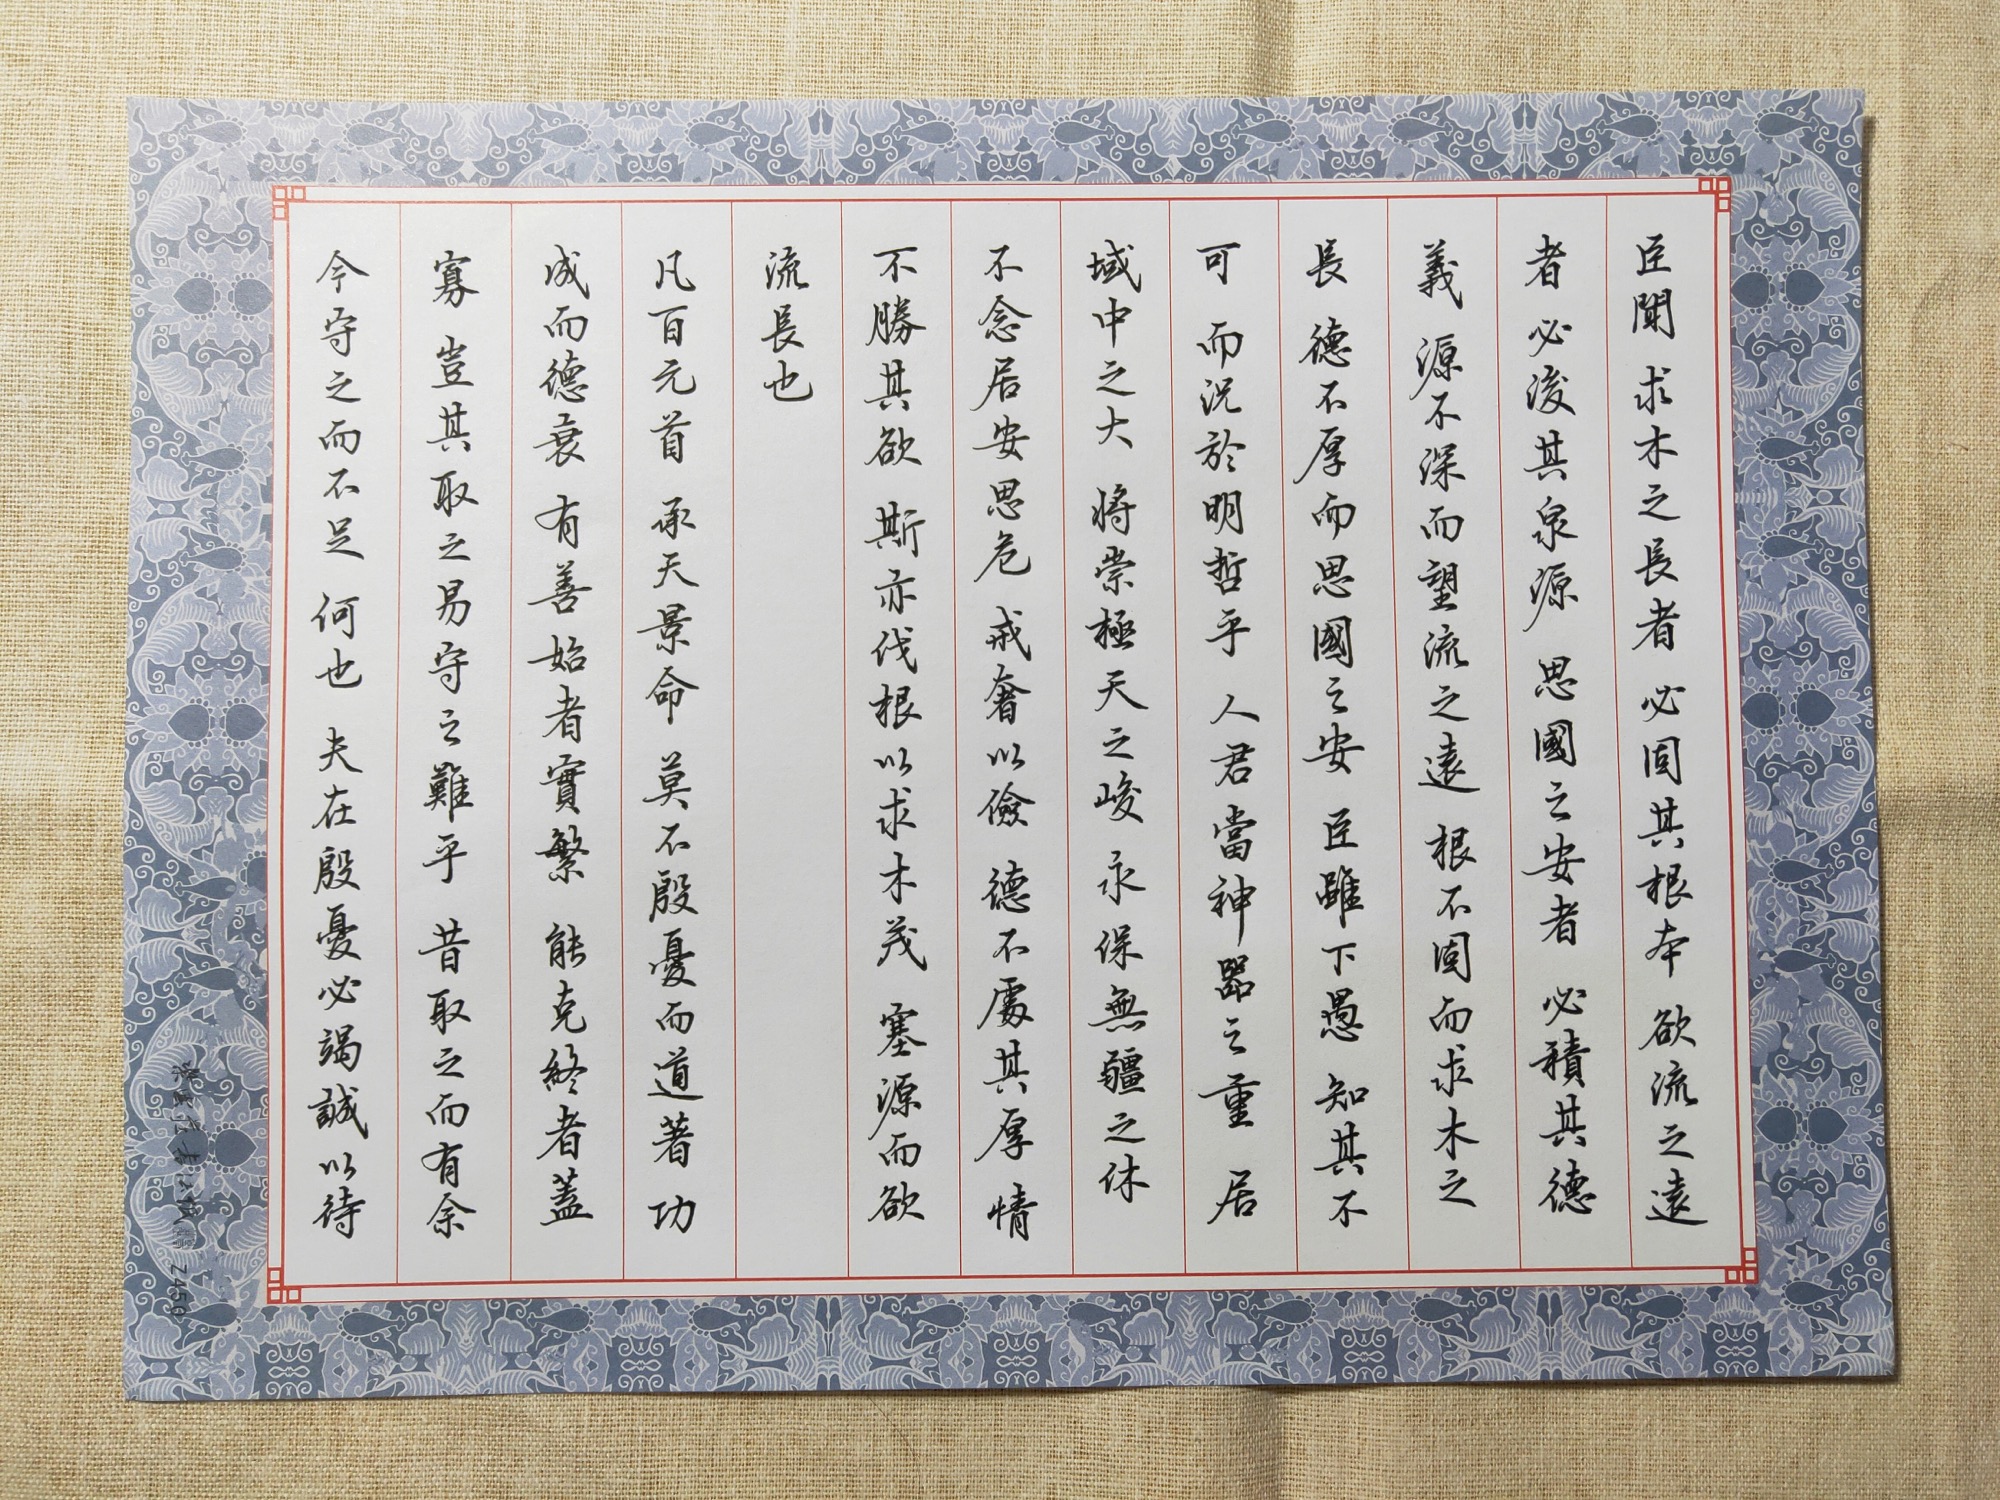 臣聞 求木之長者 必固其根本 欲流之遠
者 必浚其泉源 思國之安者 必積其德
義 源不深而望流之遠 根不固而求木之
長 德不厚而思國之安 臣雖下愚 知其不
可 而況於明哲乎 人君當神器之重 居
域中之大 將崇極天之峻 永保無疆之休
不念居安思危 戒奢以儉 德不處其厚 情
不勝其欲 斯亦伐根以求木茂 塞源而欲
流長也
凡百元首 承天景命 莫不殷憂而道著 功
成而德衰 有善始者實繁 能克終者蓋
寡 豈其取之易守之難乎 昔取之而有余
今守之而不足 何也 夫在殷憂必竭誠以待
Z450